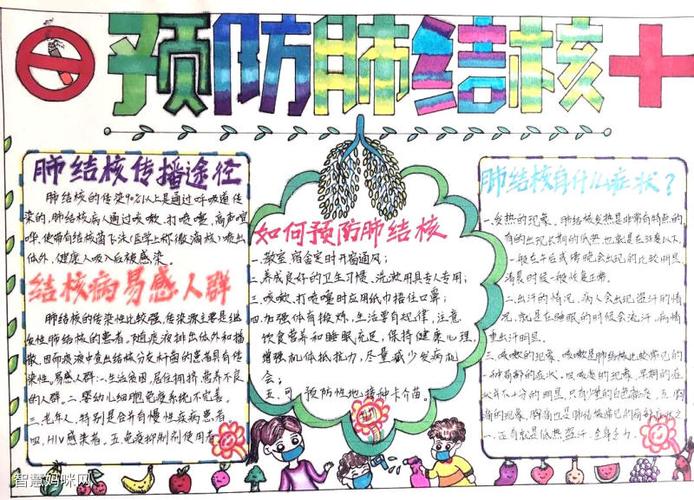 预防肺结核
肺结核传播途径
肺结核的传染90%以上是通过呼吸道传
染的,肺结核病人通过咳嗽、打喷嚏、高声喧
哗,使带有结核菌飞沫(医学上称微滴核)喷出
体外,健康人吸入后被感染。
结核病易感人群
肺结核的传染性比较强,传染源主要是继
发性肺结核的患者,随痰液排出体外和播
散,因而痰液中查出结核分枝杆菌的患者具有传
染性。易感人群:一、生活贫困,居住拥挤,营养不良
的人群。二、婴幼儿细胞免疫系统不完善。
三、老年人,特别是合并有慢性疾病患者
四、HIV感染者。五、免疫抑制剂使用者
如何预防肺结核
一、教室、宿舍定时开窗通风;
二、养成良好的卫生习惯、洗漱用具专人专用;
三、咳嗽、打喷嚏时应用纸巾捂住口鼻;
四、加强体育锻炼,生活要有规律,注意
饮食营养和睡眠充足,保持健康心理,
增强机体抵抗力,尽量减少发病机
会;
五、可预防性地接种卡介苗。
肺结核有什么症状?
一、发热的现象,肺结核发热是非常有特点的
有的出现长期的低热,也就是在38度以下
一般在午后或傍晚会出现的比较明显
清晨时候一般恢复正常。
二、出汗的情况,病人会出现盗汗的情
况,就是在睡眠的时候会流汗,病情
重出汗明显。
三、咳嗽的现象,咳嗽是肺结核比较常见的
一种
智慧妈咪网